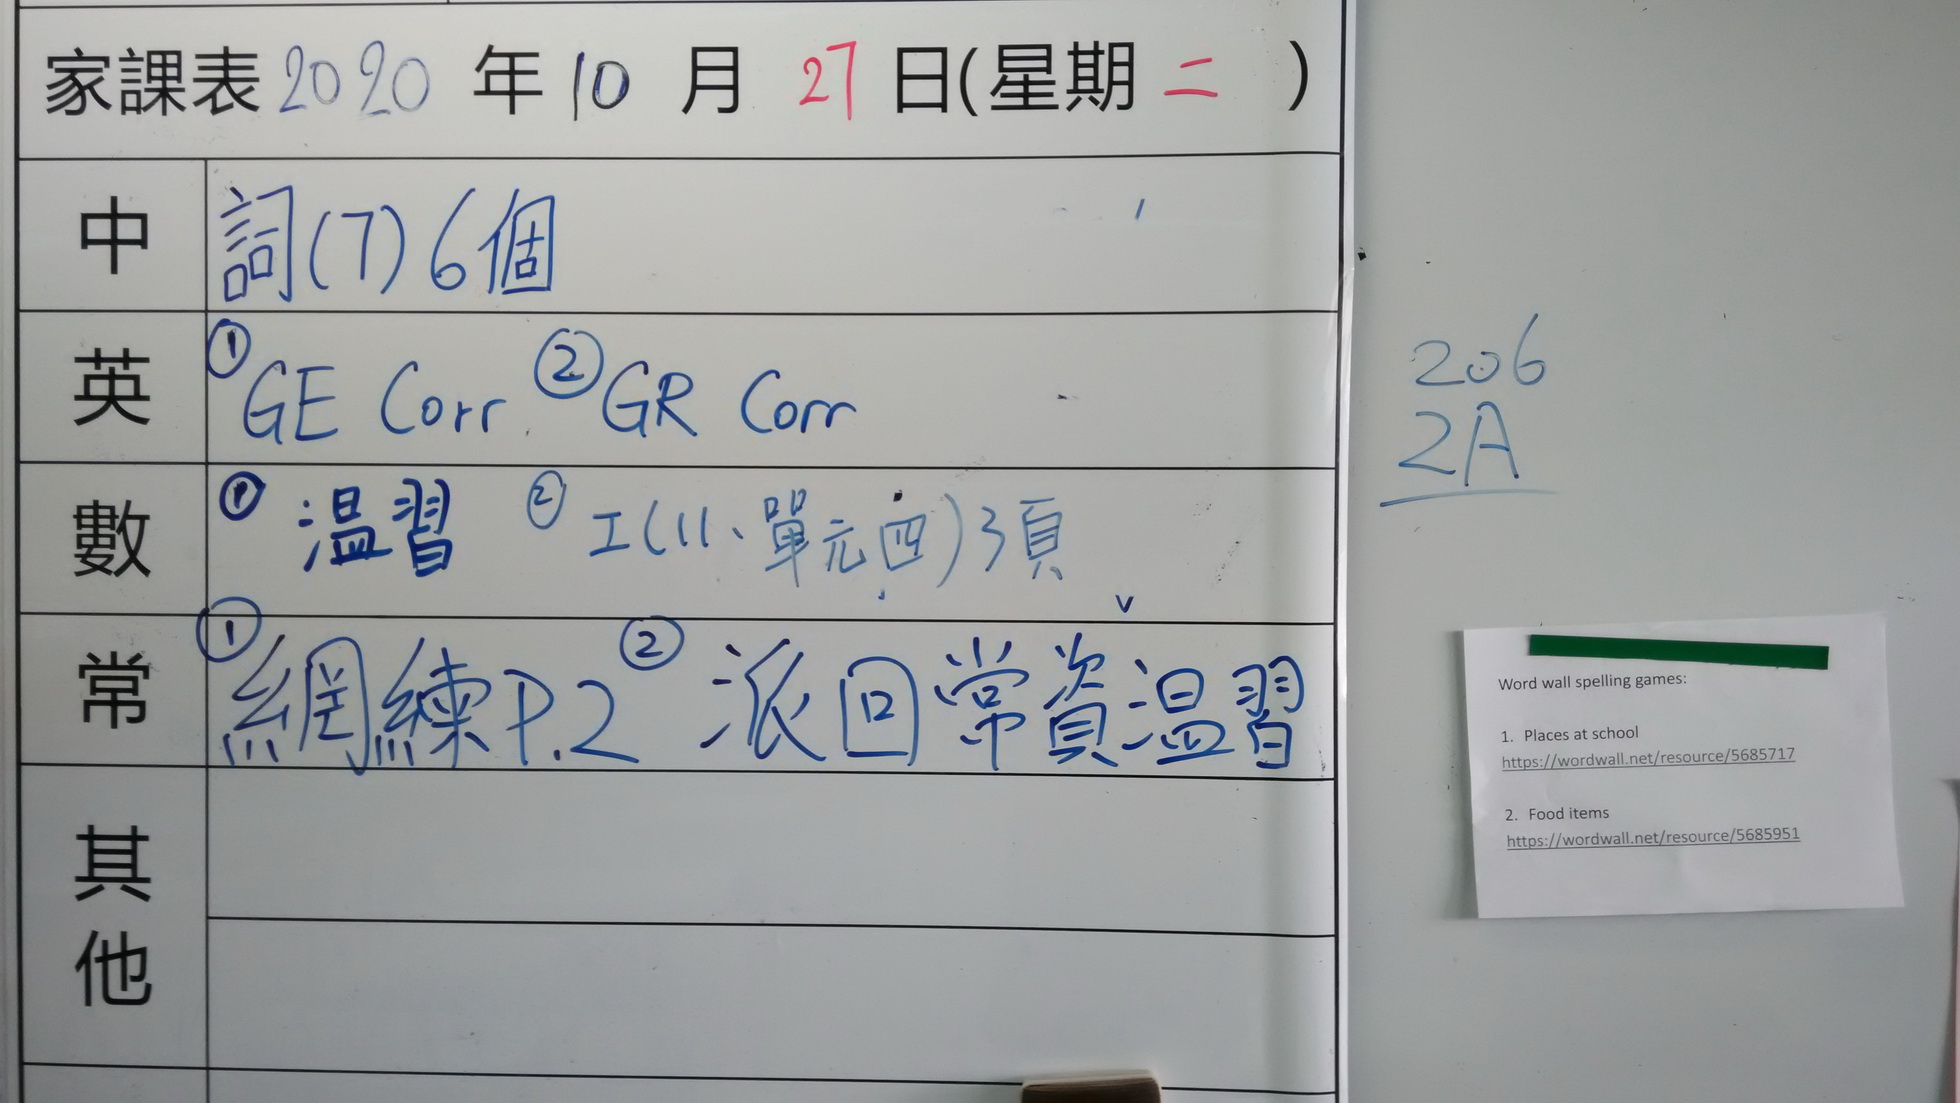 家課表 2020 年 10 月 27 日(星期 二 )
中 詞(7)6個
英 ①GE Corr ②GR Corr
數 ① 温習 ② 工(11、單元四)3頁
常 ①網練P.2 ② 派回常資温習
其他
206
2A
Word wall spelling games:
1. Places at school
https://wordwall.net/resource/5685717
2. Food items
https://wordwall.net/resource/5685951